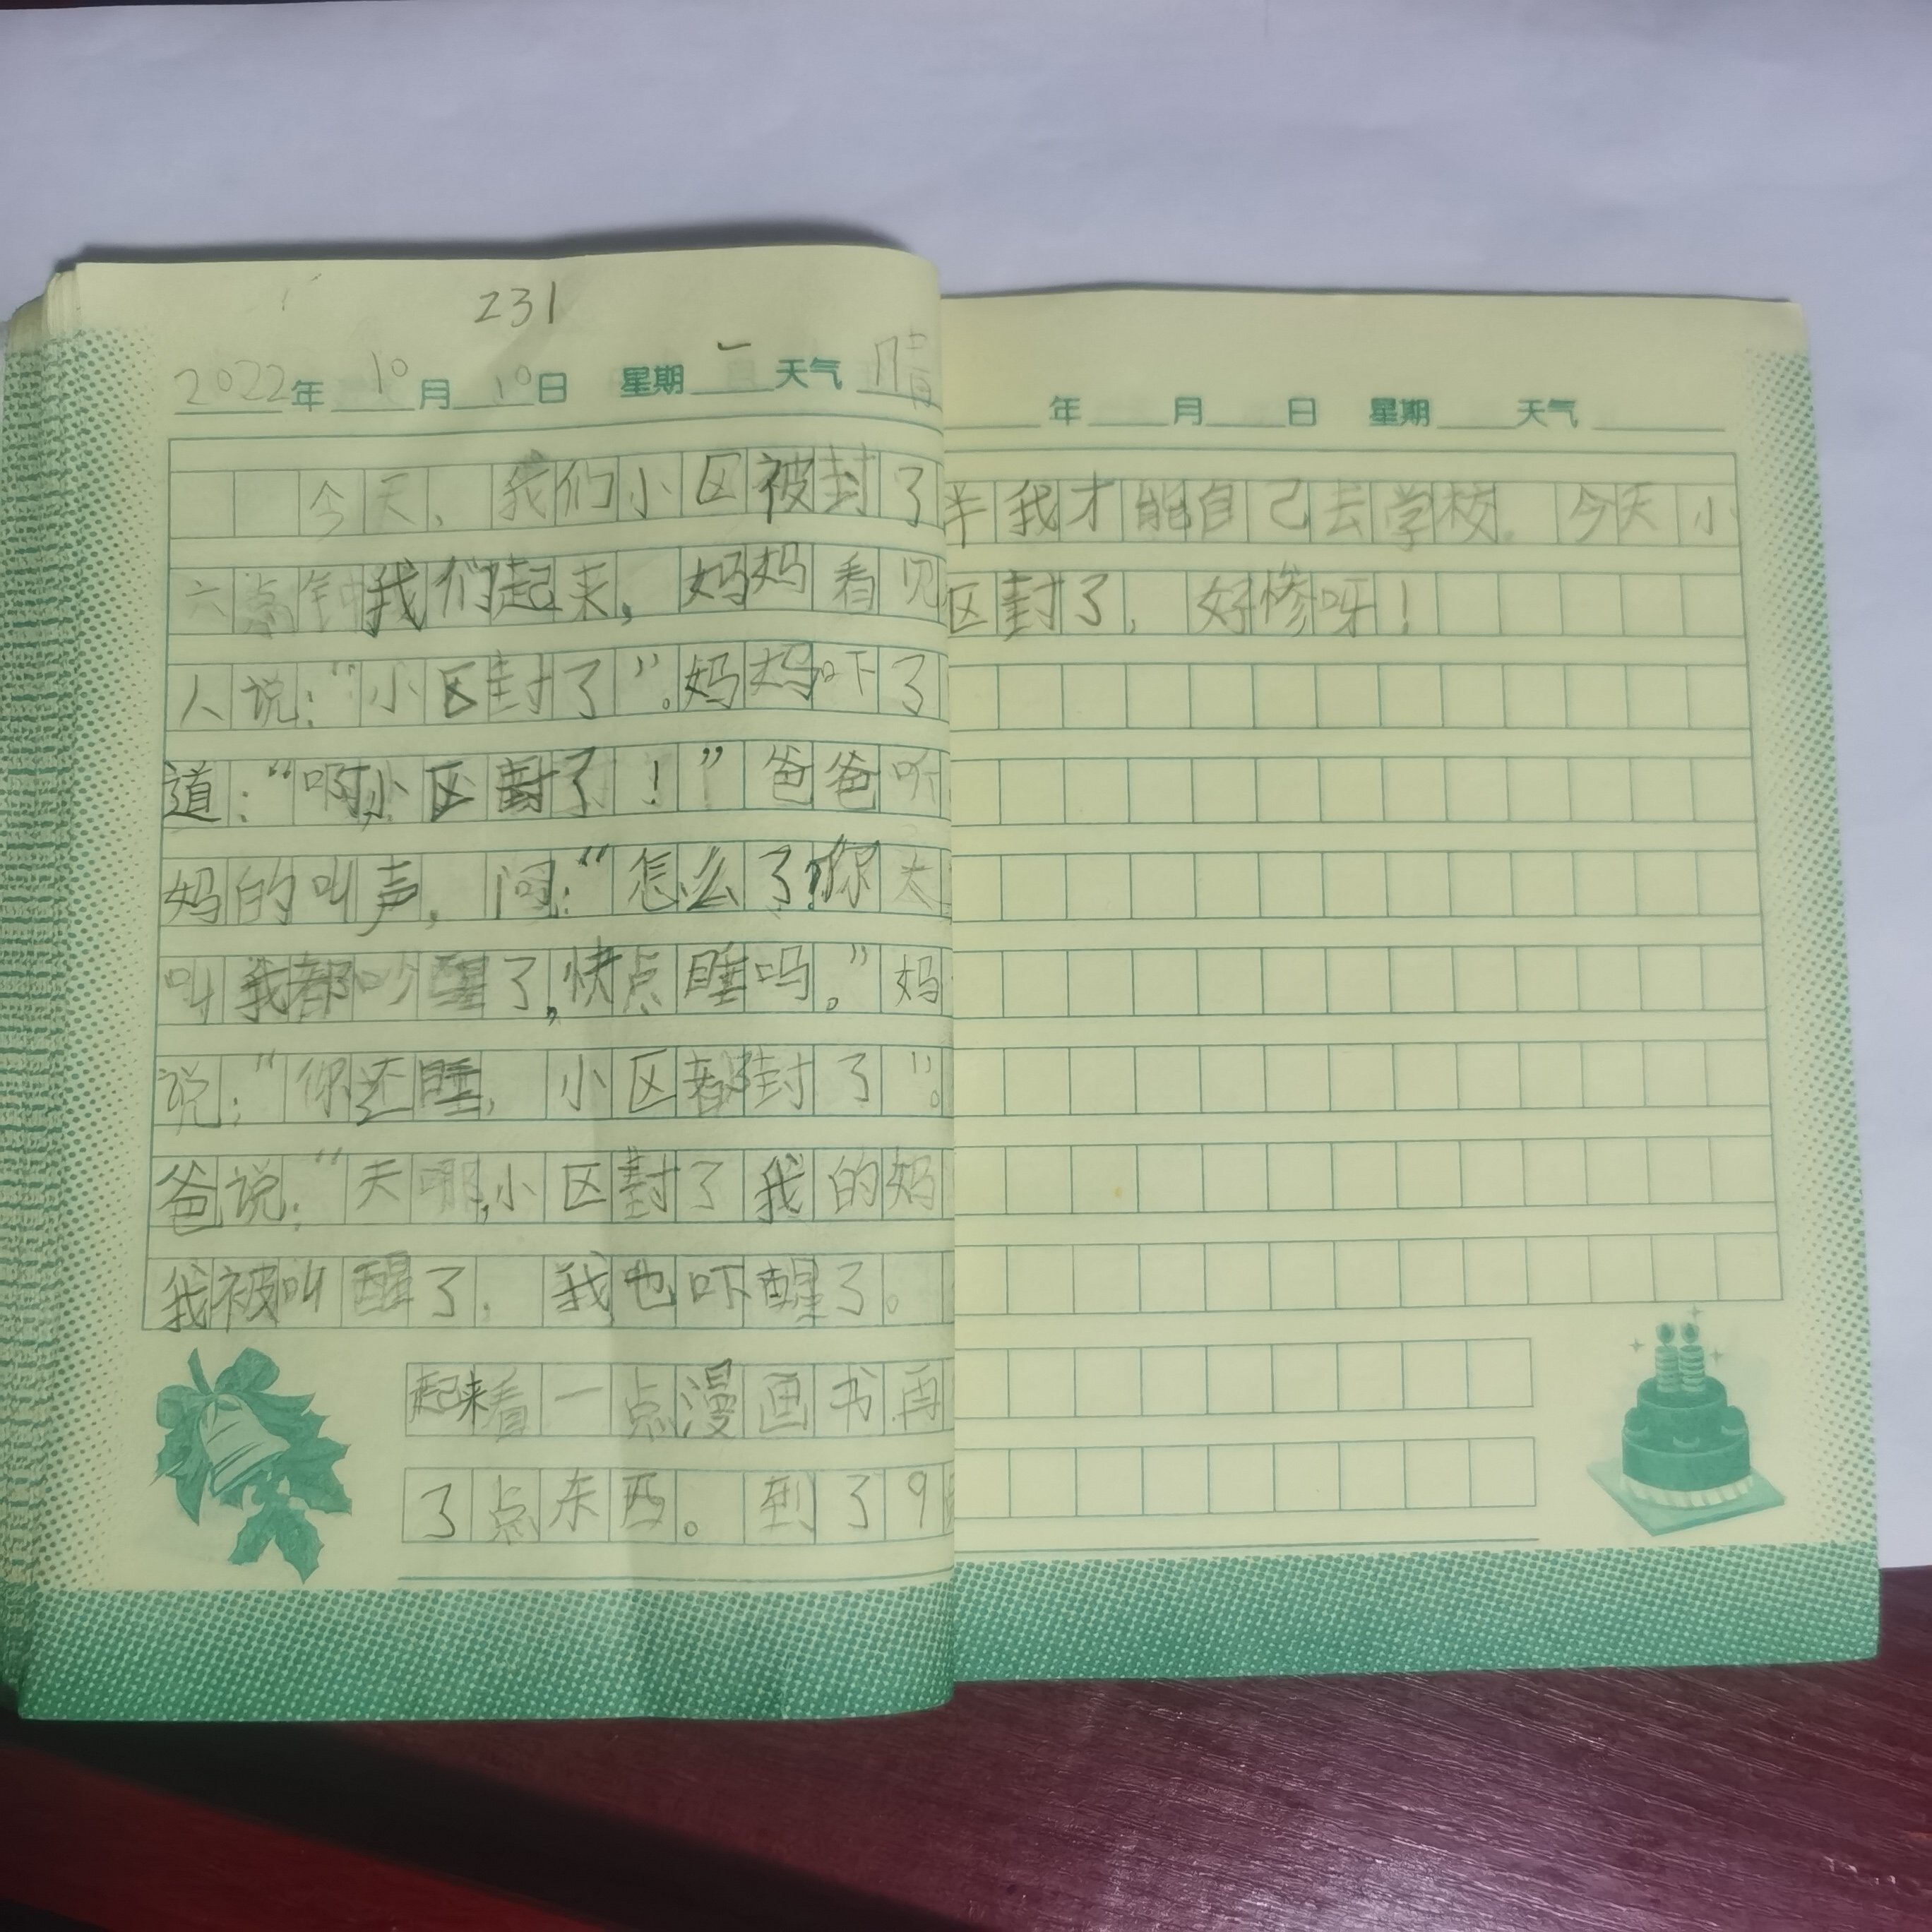 231
2022年 10月 10日 星期一 天气 晴
今天，我们小区被封了
六点钟我们起来，妈妈看见
人说：“小区封了”。妈妈吓了
道：“啊，小区封了！”爸爸听
妈的叫声，问：“怎么了？你太
叫我都吵醒了，快点睡吗。”妈
说：“你还睡，小区都封了”。
爸说：“天哪，小区封了我的妈
我被叫醒了，我也吓醒了。
起来看一点漫画书再
了点东西。到了9
年 月 日 星期 天气
半我才能自己去学校。今天小
区封了，好惨呀！